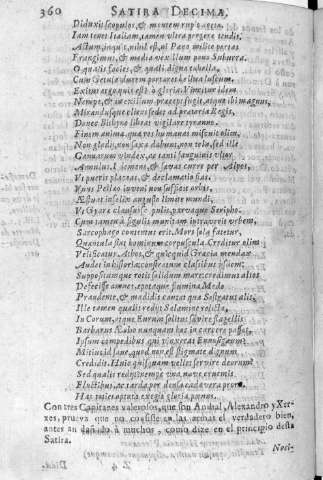 360 SATIRA DECIMA,
Diduxit scopulos, & montem rupit aceto.
Iam tenet Italiam, tamen ultra pergere tendit,
Actum, inquit, nihil est, ni Pœno milite portas
Frangimus, & media vexillum pono Suburra.
O qualis facies, & quali digna tabella,
Cum Getula ducem portaret belua luscum,
Exitus ergo quis est? ò gloria, Vincitur idem
Nempe, & in exilium præceps fugit, atque ibi magnus,
Mirandusque cliens sedet ad prætoria Regis,
Donec Bithyno libeat vigilare tyranno.
Finem animæ, quæ res humanas miscuit olim,
Non gladij, non saxa dabunt, non tela, sed ille
Cannarum vindex, ac tanti sanguinis ultor
Annulus. I demens, & sævas curre per Alpes,
Vt pueris placeas, & declamatio fias.
Vnus Pellæo iuveni non sufficit orbis,
Æstuat infelix angusto limite mundi,
Vt Gyaræ clausus scopulis, parvaque Seripho.
Cum tamen à figulis munitam intraverit urbem,
Sarcophago contentus erit. Mors sola fatetur,
Quantula sint hominum corpuscula. Creditur olim
Velificatus Athos, & quicquid Græcia mendax
Audet in historia: constratum classibus ijsdem,
Suppositumque rotis solidum mare: credimus altos
Defecisse amnes, epotaque flumina Medo
Prandente, & madidis cantat quæ Sostratus alis.
Ille tamen qualis redijt Salamine relicta,
In Corum, atque Eurum solitus sævire flagellis
Barbarus Æolio nunquam hoc in carcere passos,
Ipsum compedibus qui vinxerat Ennosigæum?
Mitius id sane, quod non & stigmate dignum
Credidit. Huic quisquam vellet servire deorum?
Sed qualis redijt? nempe una nave, cruentis
Fluctibus, ac tarda per densa cadavera prora.
Has toties optata exegit gloria pœnas.
Con tres Capitanes valerosos, que son Anibal, Alexandro y Xer-
xes, prueva que no consiste en las armas el verdadero bien,
antes an dañado à muchos, como dize en el principio desta
Satira.
Noti-